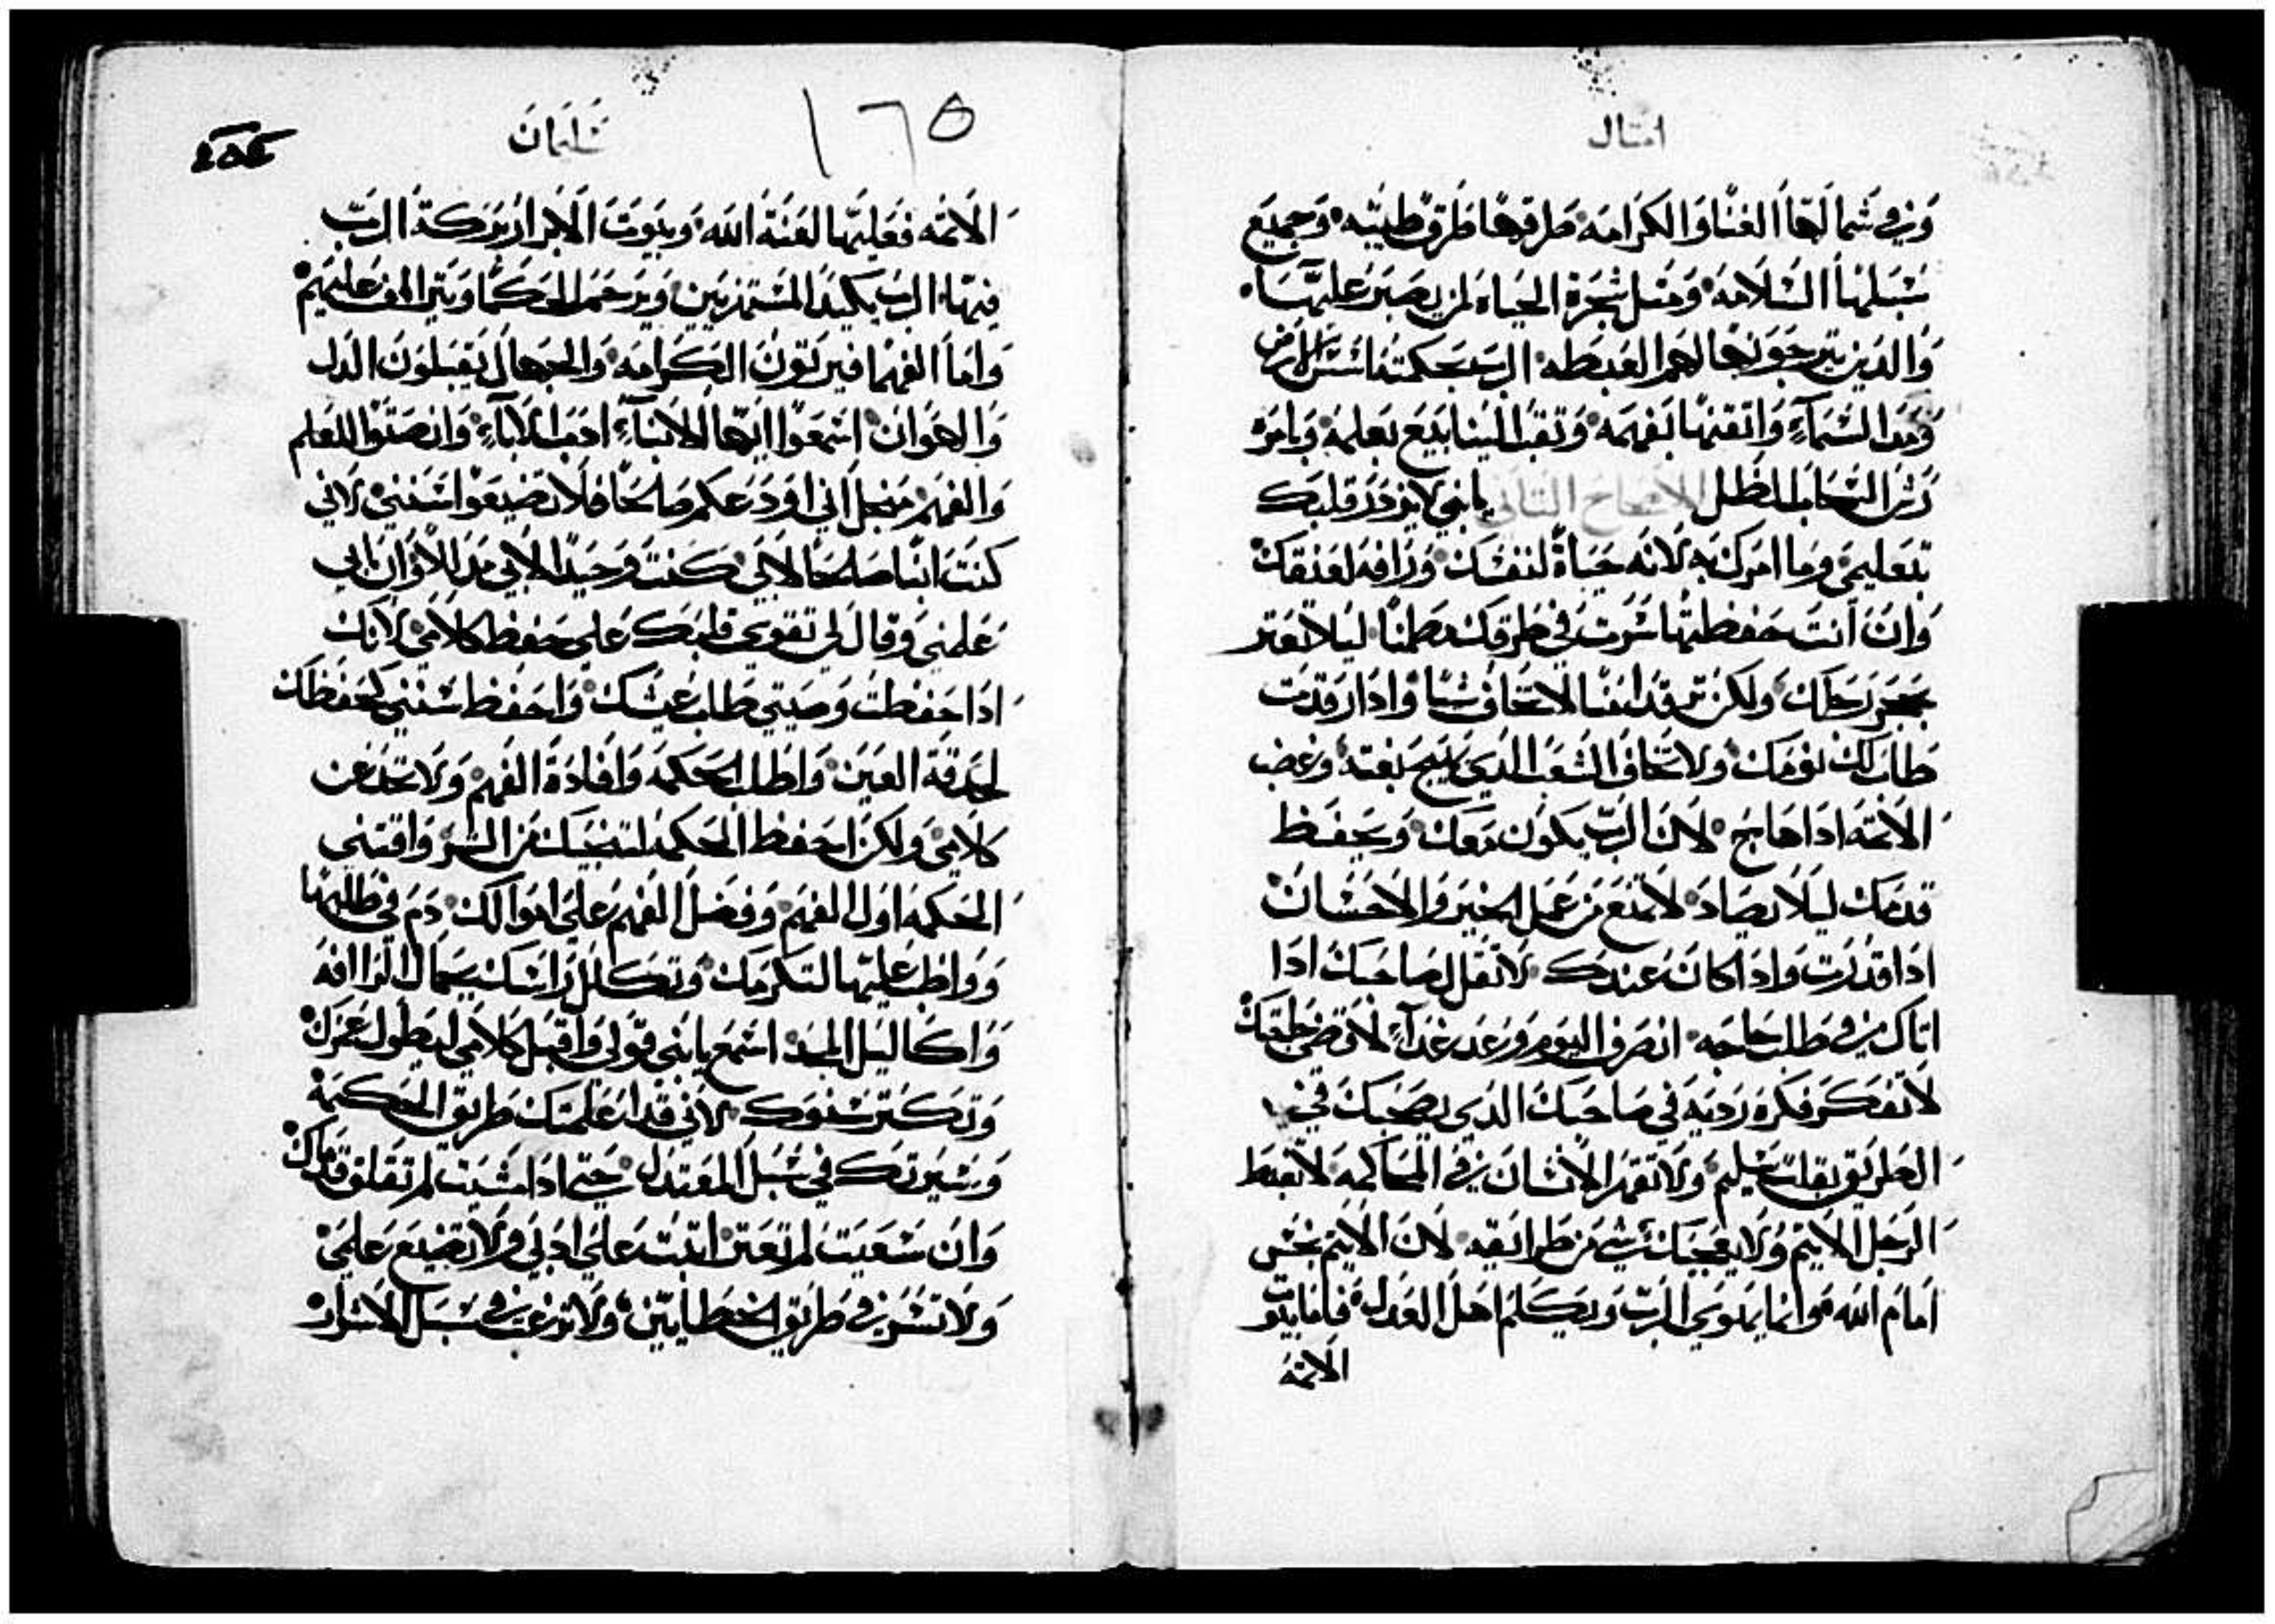 امثال
وفي شمالها الغنا والكرامه طرقها طرق طيبه وجميع
سبلها السلامه ومثل شجرة الحياه لمن يصبر عليها
والدين يرجونها لهم الغبطه الرب بحكمته اسس الارض
السماء واتقنها بفهمه وتقب الينابيع بعلمه وبامره
رش السحاب الطل الاصحاح التاني يابني لا يزدر قلبك
بتعليمي وما امرك به لانه حياة لنفسك ورافه لعنقك
وان انت حفظتها سرت في طرقك مطمنا ليلا تعتر
بحجر رجلك ولكن ترقد ايضا لا تخاف شيا وادا رقدت
طاب لك نومك ولا تخاف الشغب الدي يهيج بغته وغضب
الاتمه ادا هاج لان الرب يكون معك ويحفظ
قدمك ليلا يصاد لا تمتنع من عمل الخير والاحسان
ادا قدرت وادا كان عندك لا تقل لصاحبك ادا
اتاك في طلب حاجه انصرف اليوم وعد غداء لاقضي حاجتك
لا تفكر فكره رديه في صاحبك الدي يصحبك في
الطريق بقلب سليم ولا تقهر الانسان في المحاكمه لا تغبط
الرجل الاتيم ولا يعجبك شي من طرايقه لان الاتيم نجس
امام الله وانما يهوي الرب ويكلم اهل العدل فاما بيوت
الاتمه
سليمان
١٦٥
الاتمه فعليها لعنة الله وبيوت الابرار بركة الرب
فيها الرب يكيد المستهزيين ويرحم الحكما ويترااف عليهم
واما الفهما فيرتون الكرامه والجهال يقبلون الدل
والهوان اسمعوا ايها الابناء ادب الاباء وانصتوا للعلم
والفهم من اجل اني اودعكم صالحا فلا تضيعوا سنني لاني
كنت ابنا صالحا لابي كنت وحيدا لابي مدا الاوان ابي
علمني وقال لي تقوي قلبك علي حفظ كلامي لانك
ادا حفظت وصيتي طاب عيشك واحفظ سنني كحفظك
لحدقة العين واطلب الحكمه وافادة الفهم ولا تحد عن
كلامي ولكن احفظ الحكمه لتنجيك من الشر واقتني
الحكمه اول الفهم وفضل الفهم علي اموالك دم في طلبها
وواظب عليها لتكرمك وتكلل راسك بجمال الراافه
واكاليل المجد اسمع يابني قولي واقبل كلامي ليطول عمرك
وتكتر سنوك لاني قد اعلمتك طريق الحكمه
وسيرتك في سبل المعتدل حتي ادا مشيت لم تقلق قدماك
وان سعيت لم تعتر اتبت علي ادبي ولا تضيع علمي
ولا تسر في طريق الخطايين ولا ترغب في سبل الاشرار